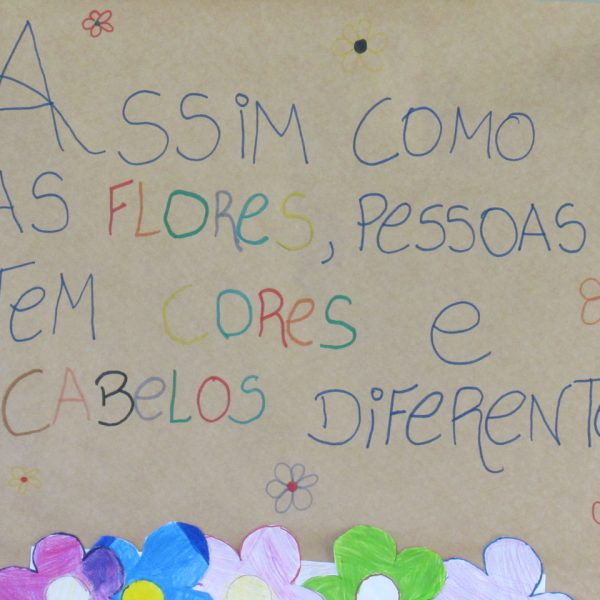 ASSIM COMO
AS FLORES, PESSOAS
TEM CORES E
CABELOS DIFERENTE